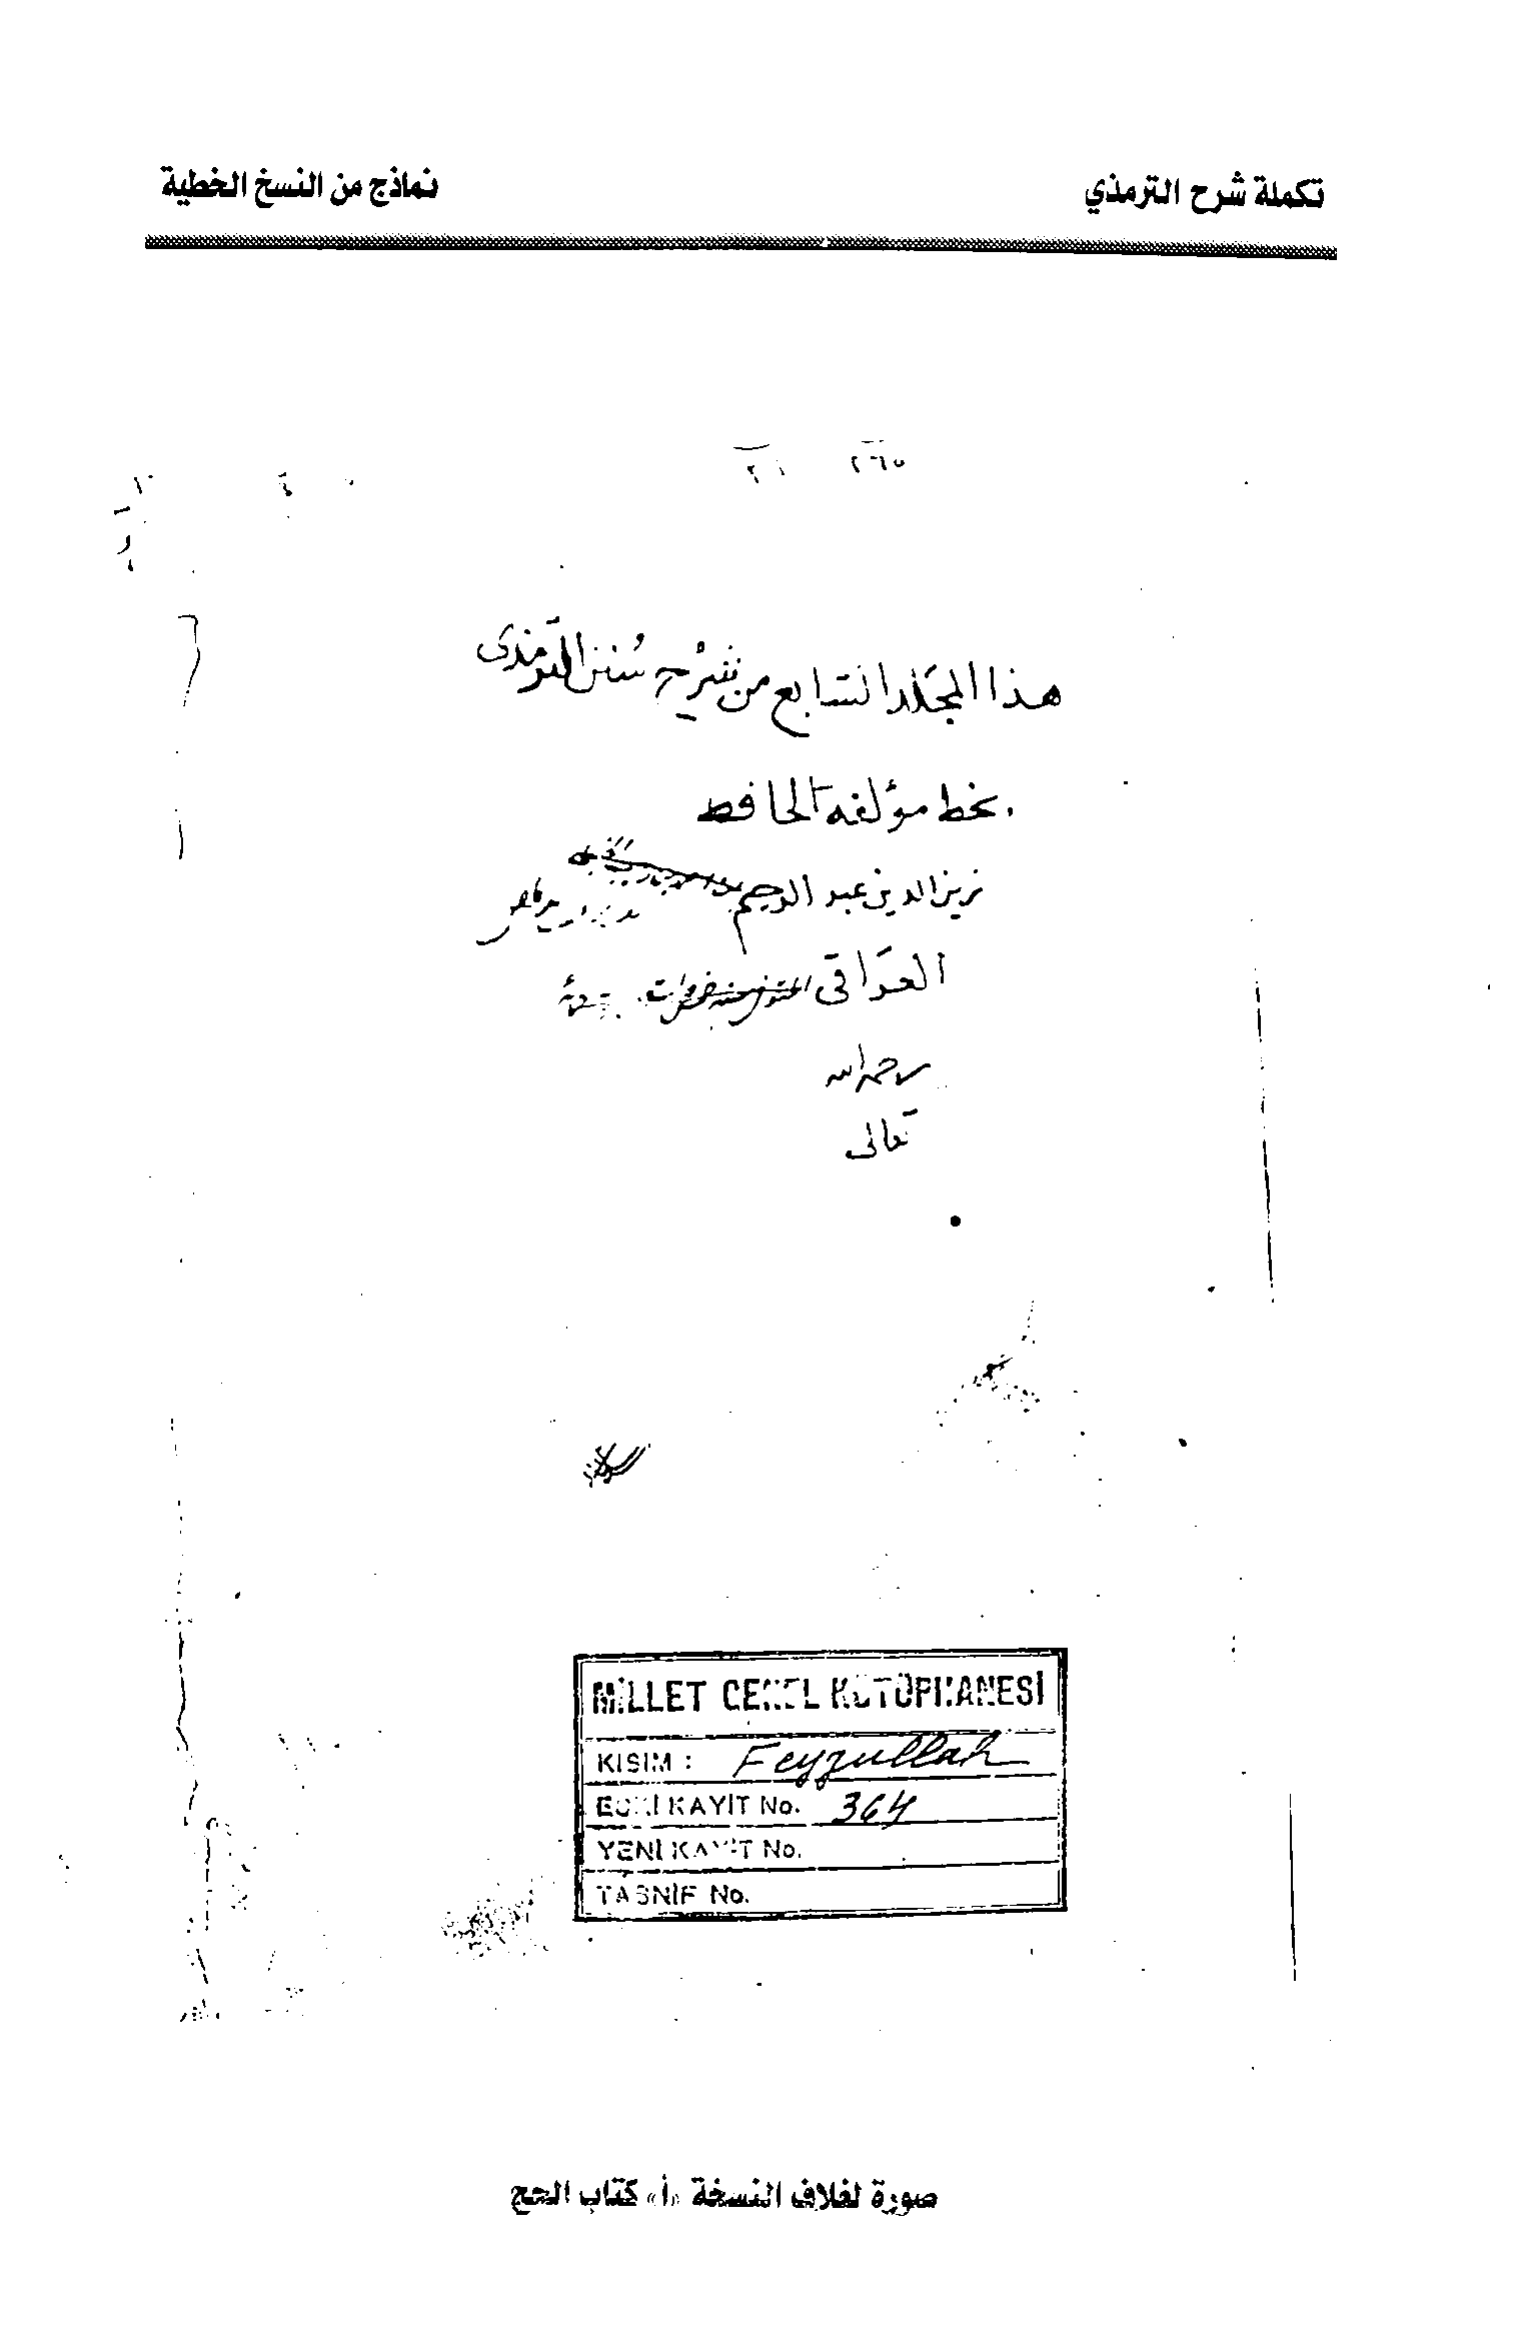 تكملة شرح الترمذي
نماذج من النسخ الخطية
هذا المجلد السابع من شرح سنن الترمذى
بخط مؤلفه الحافظ
زين الدين عبد الرحيم
العراقى
رحمه الله
تعالى
MİLLET GENEL KÜTÜPHANESİ
KISIM : Feyzullah
ESKİ KAYIT No. 364
YENİ KAYIT No.
TASNİF No.
صورة لغلاف النسخة «أ» كتاب الحج